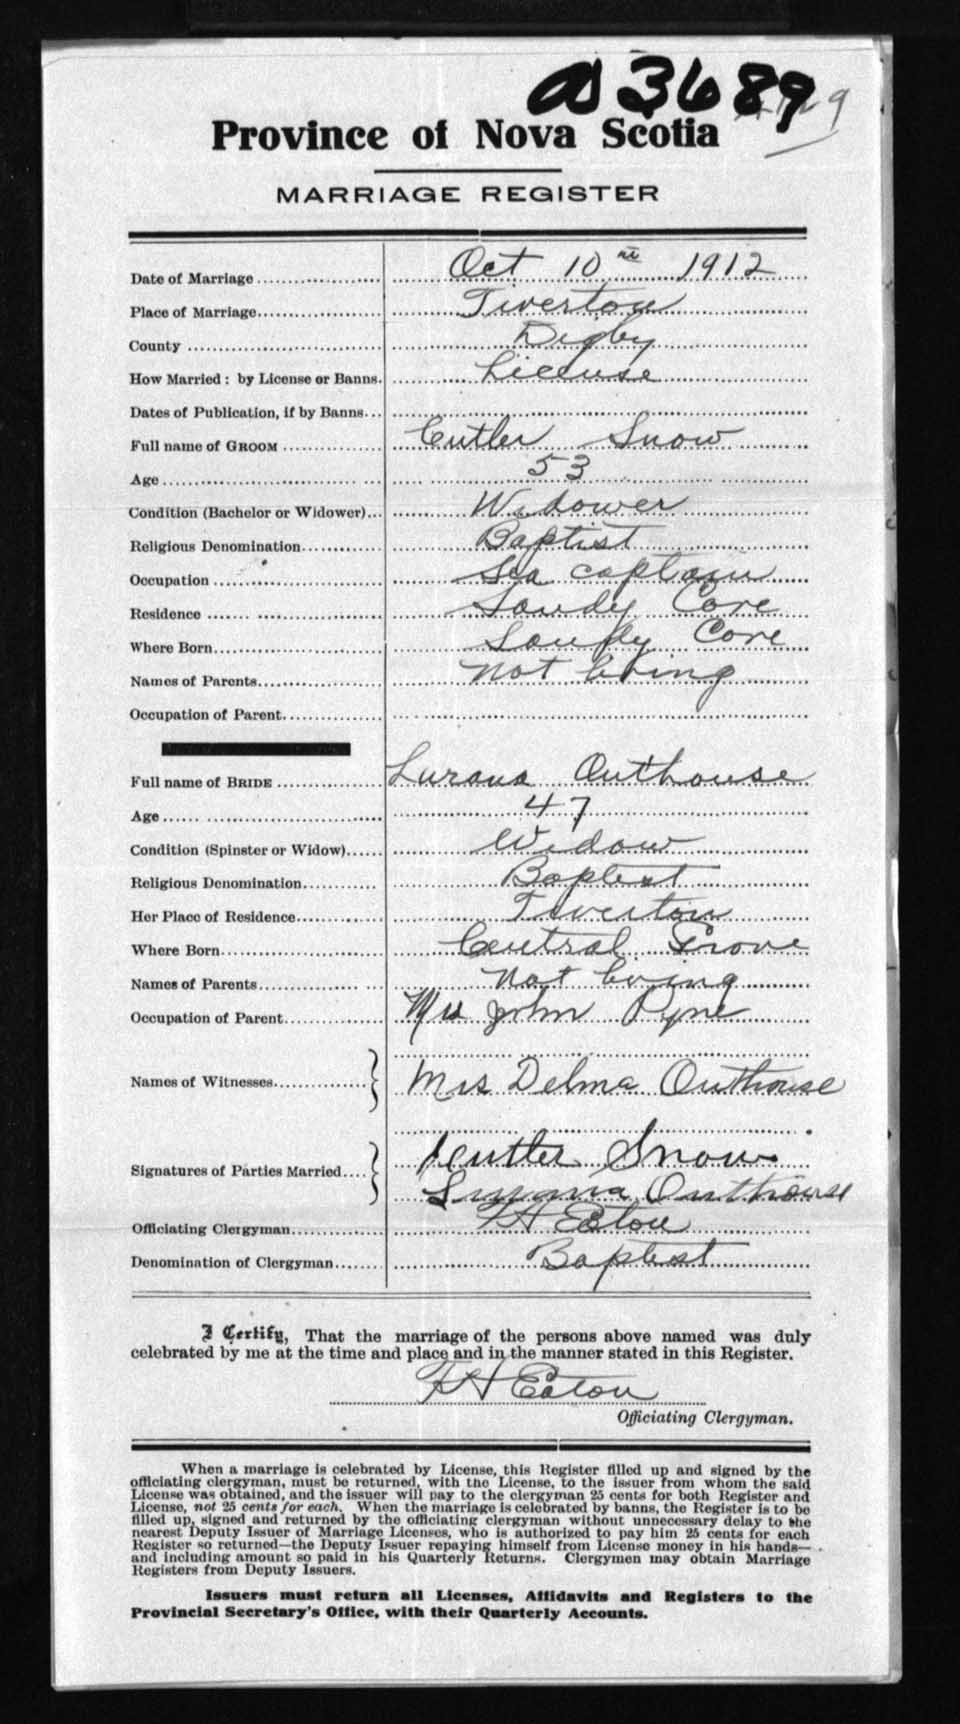 a 3689
Province of Nova Scotia
MARRIAGE REGISTER
Date of Marriage Oct 10th 1912
Place of Marriage Tiverton
County Digby
How Married: by License or Banns. License
Dates of Publication, if by Banns
Full name of GROOM Cutler Snow
Age 53
Condition (Bachelor or Widower) Widower
Religious Denomination Baptist
Occupation Sea captain
Residence Sandy Cove
Where Born Sandy Cove
Names of Parents not living
Occupation of Parent
Full name of BRIDE Lurana Outhouse
Age 47
Condition (Spinster or Widow) Widow
Religious Denomination Baptist
Her Place of Residence Tiverton
Where Born Central Grove
Names of Parents not living
Occupation of Parent Mrs John Pyne
Names of Witnesses Mrs Delma Outhouse
Signatures of Parties Married Cutler Snow
Outhouse
Officiating Clergyman FH Eaton
Denomination of Clergyman Baptist
I Certify, That the marriage of the persons above named was duly
celebrated by me at the time and place and in the manner stated in this Register.
FH Eaton
Officiating Clergyman.
When a marriage is celebrated by License, this Register filled up and signed by the
officiating clergyman, must be returned, with the License, to the issuer from whom the said
License was obtained, and the issuer will pay to the clergyman 25 cents for both Register and
License, not 25 cents for each. When the marriage is celebrated by banns, the Register is to be
filled up, signed and returned by the officiating clergyman without unnecessary delay to the
nearest Deputy Issuer of Marriage Licenses, who is authorized to pay him 25 cents for each
Register so returned—the Deputy Issuer repaying himself from License money in his hands—
and including amount so paid in his Quarterly Returns. Clergymen may obtain Marriage
Registers from Deputy Issuers.
Issuers must return all Licenses, Affidavits and Registers to the
Provincial Secretary's Office, with their Quarterly Accounts.